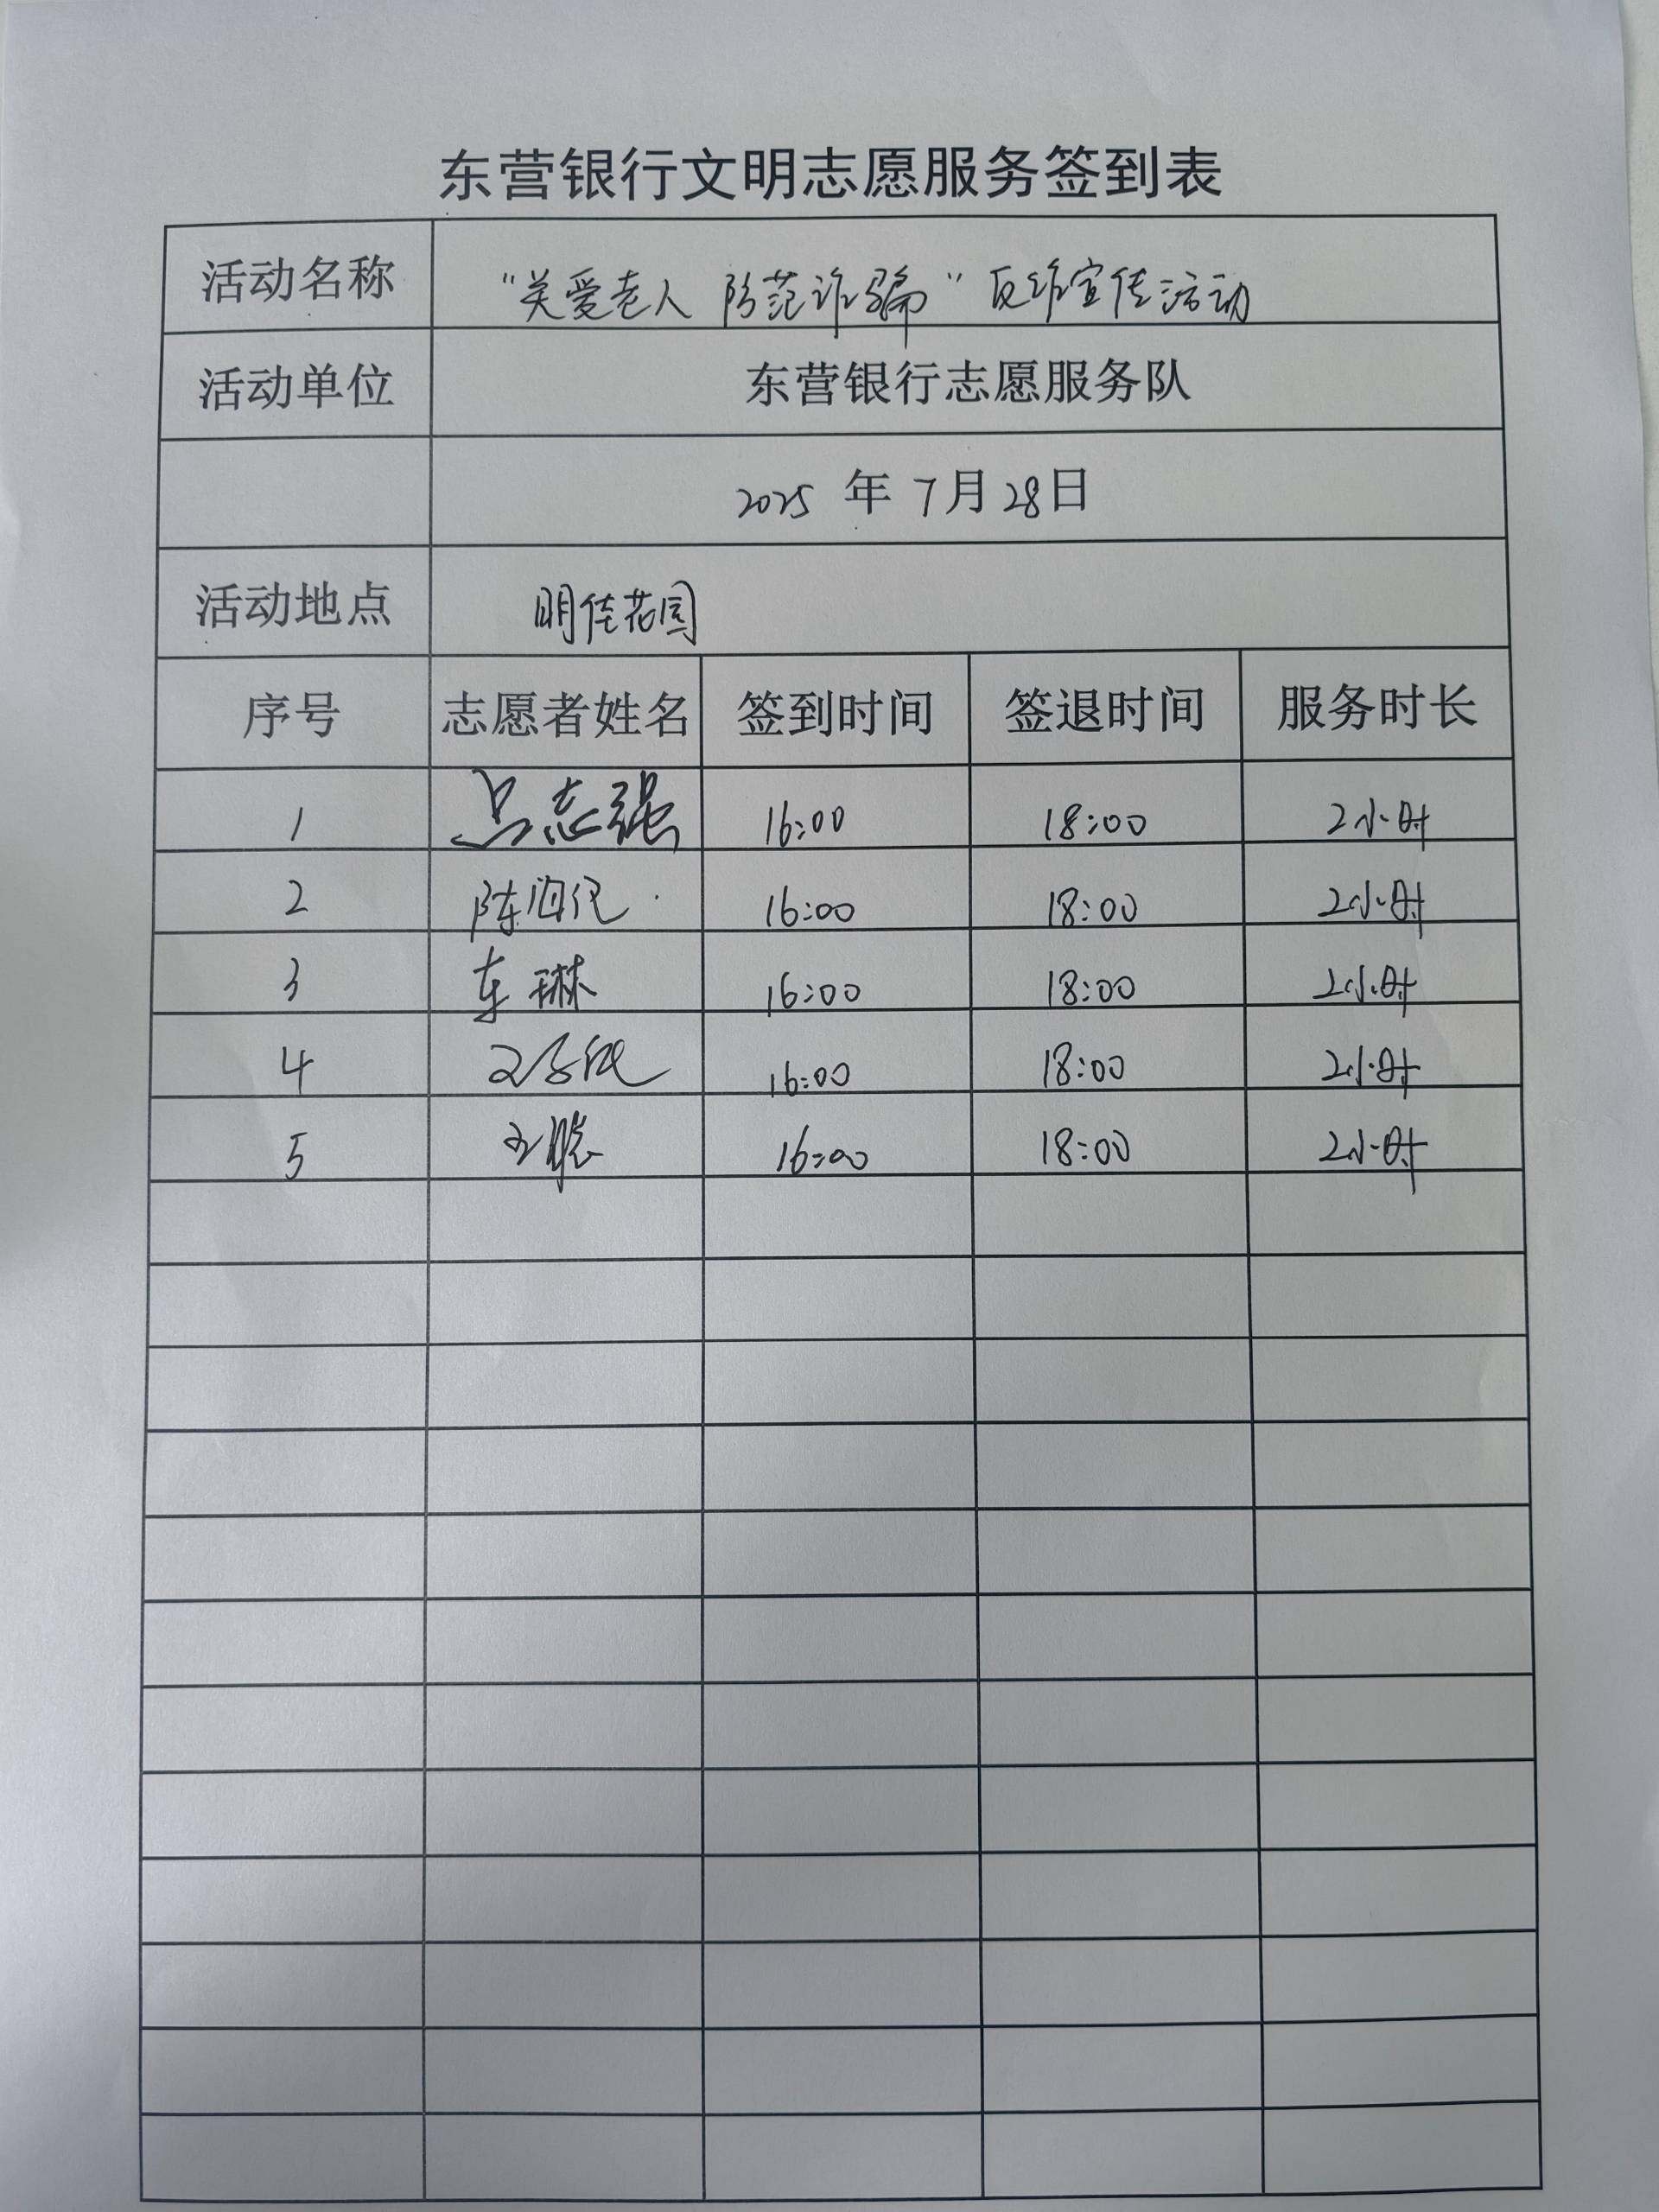 东营银行文明志愿服务签到表
活动名称 “关爱老人 防范诈骗”反诈宣传活动
活动单位 东营银行志愿服务队
2025年7月28日
活动地点 明佳花园
序号 志愿者姓名 签到时间 签退时间 服务时长
1 志强 16:00 18:00 2小时
2 陈 16:00 18:00 2小时
3 琳 16:00 18:00 2小时
4 16:00 18:00 2小时
5 王聪 16:00 18:00 2小时